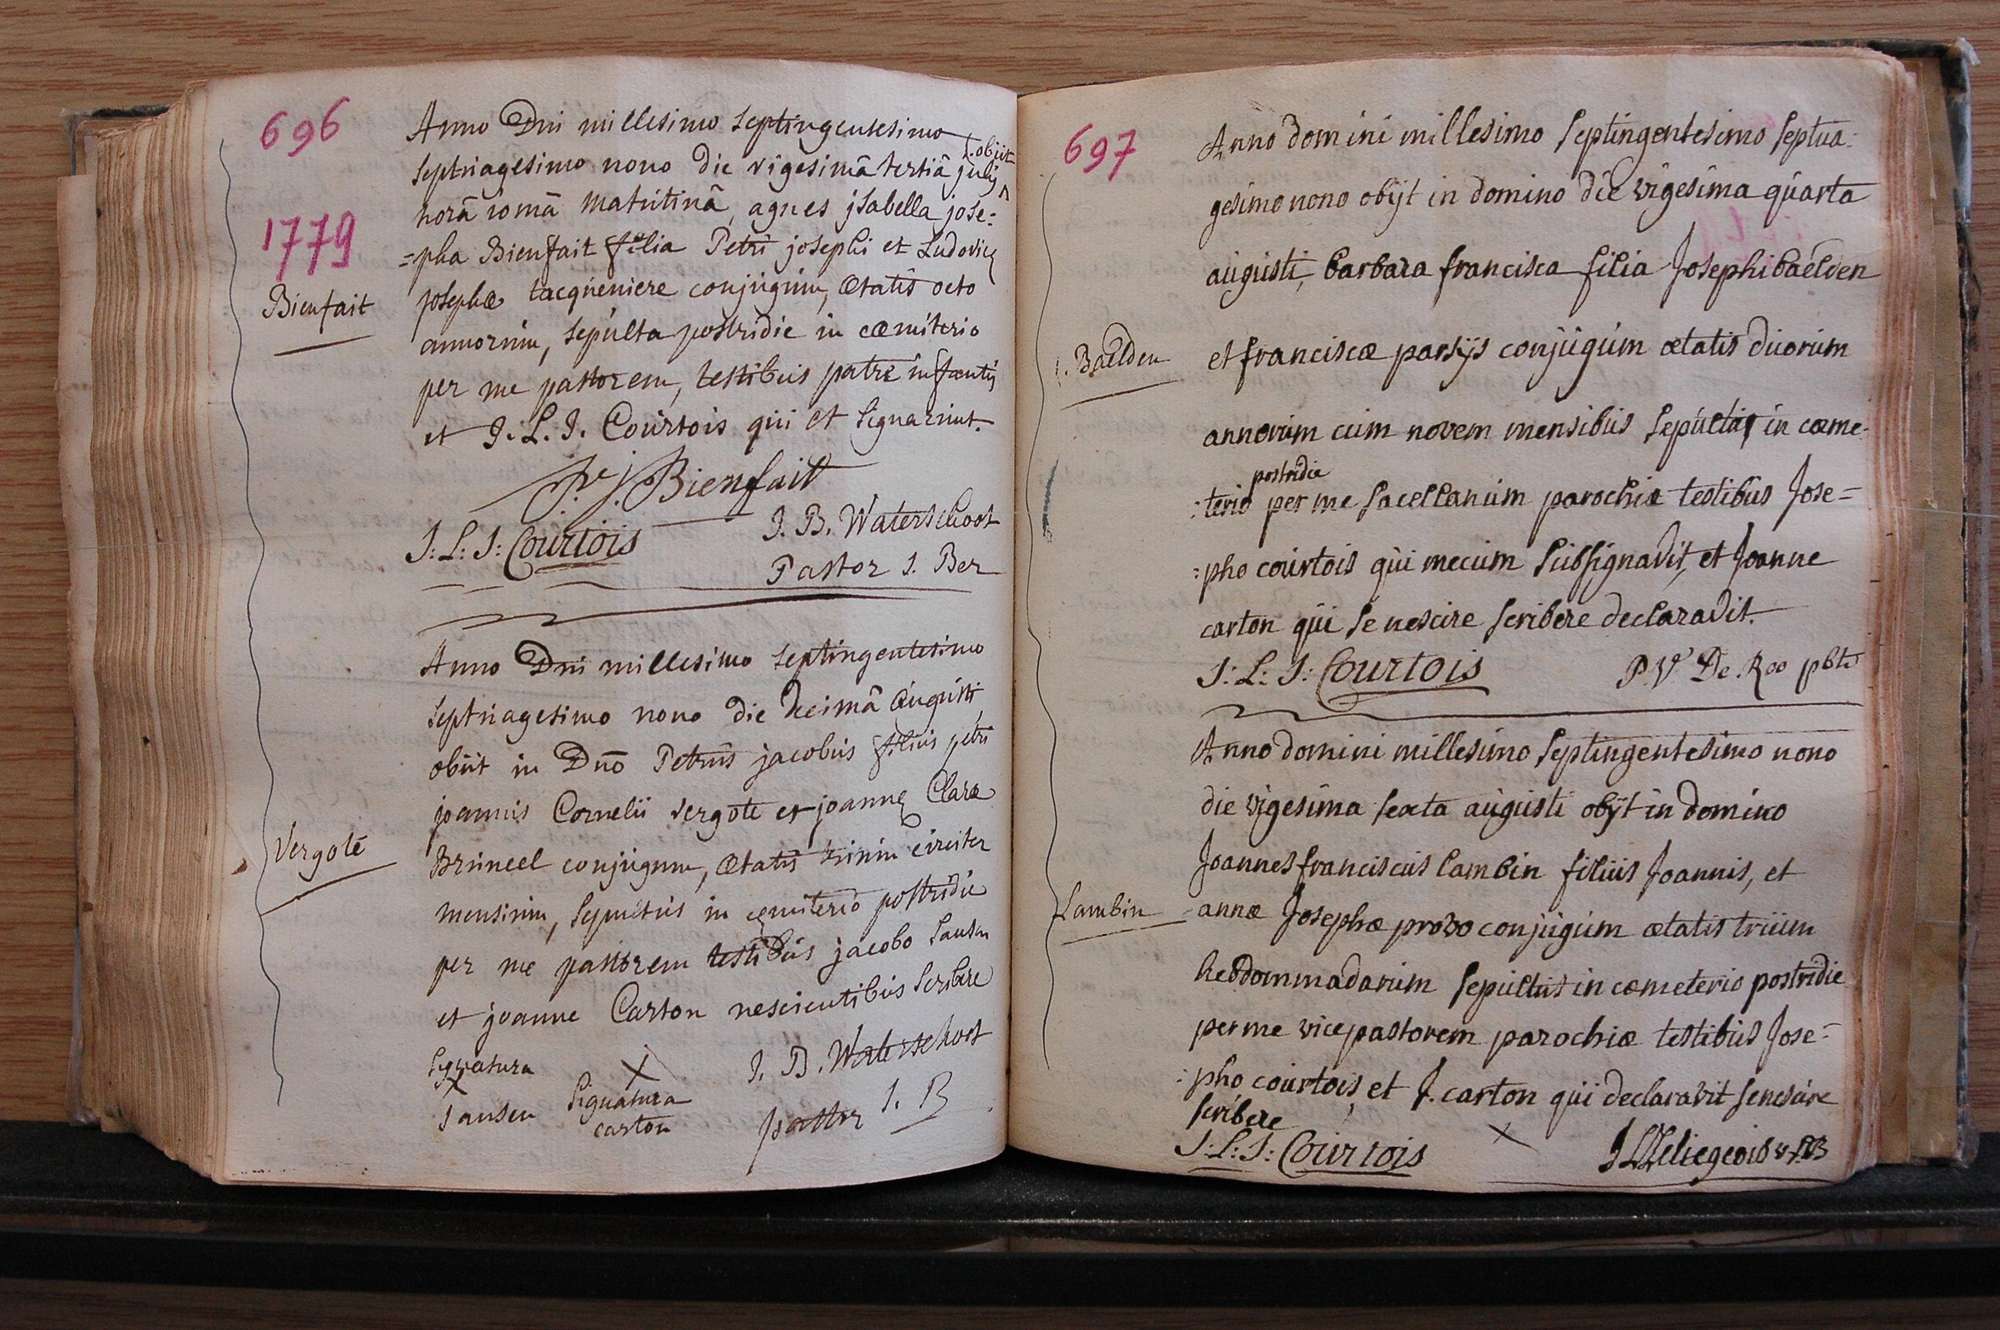 696
1779
Bienfait
Anno Dni millesimo septingentesimo
septuagesimo nono die vigesimâ tertiâ julij obiit
horâ 10mâ matutinâ, agnes jsabella jose-
=pha Bienfait filia Petri josephi et Ludovicæ
josephæ tacqueniere conjugum, ætatis octo
annorum, sepulta postridie in cæmiterio
per me pastorem, testibus patre infantis
et J. L. J. Courtois qui et signarunt.
P. J. Bienfait
J: L: J: Courtois
J. B. Waterschoot
Pastor S. Ber
Vergote
Anno Dni millesimo septingentesimo
septuagesimo nono die decimâ augusti
obiit in Dno Petrus jacobus filius petri
joannis Cornelii vergote et joannæ Claræ
Bruneel conjugum, ætatis trium circiter
mensium, sepultus in cemiterio postridie
per me pastorem testibus jacobo Jansen
et joanne Carton nescientibus scribere
signatura
X
Jansen
X
Signatura
carton
J. B. Waterschoot
pastor S. B
697
Baelden
Anno domini millesimo septingentesimo septua-
gesimo nono obijt in domino die vigesima quarta
augusti, barbara francisca filia Josephi baelden
et franciscæ parsijs conjugum ætatis duorum
annorum cum novem mensibus sepulta in cæme-
postridie
:terio per me sacellanum parochiæ testibus Jose=
:pho courtois qui mecum subsignavit, et Joanne
carton qui se nescire scribere declaravit.
J: L: J: Courtois
P. V. De. Roo pbter
Lambin
Anno domini millesimo septingentesimo nono
die vigesima sexta augusti obijt in domino
Joannes franciscus lambin filius Joannis, et
=annæ Josephæ provo conjugum ætatis trium
hebdommadarum sepultus in cæmeterio postridie
per me vicepastorem parochiæ testibus Jose=
:pho courtois, et J. carton qui declaravit se nescire
scribere
J: L: J: Courtois
X